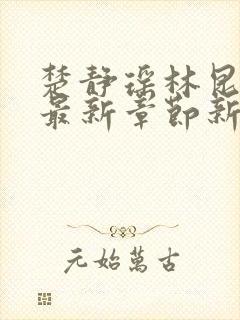 楚静瑶林昆
最新章节新
元始萬古